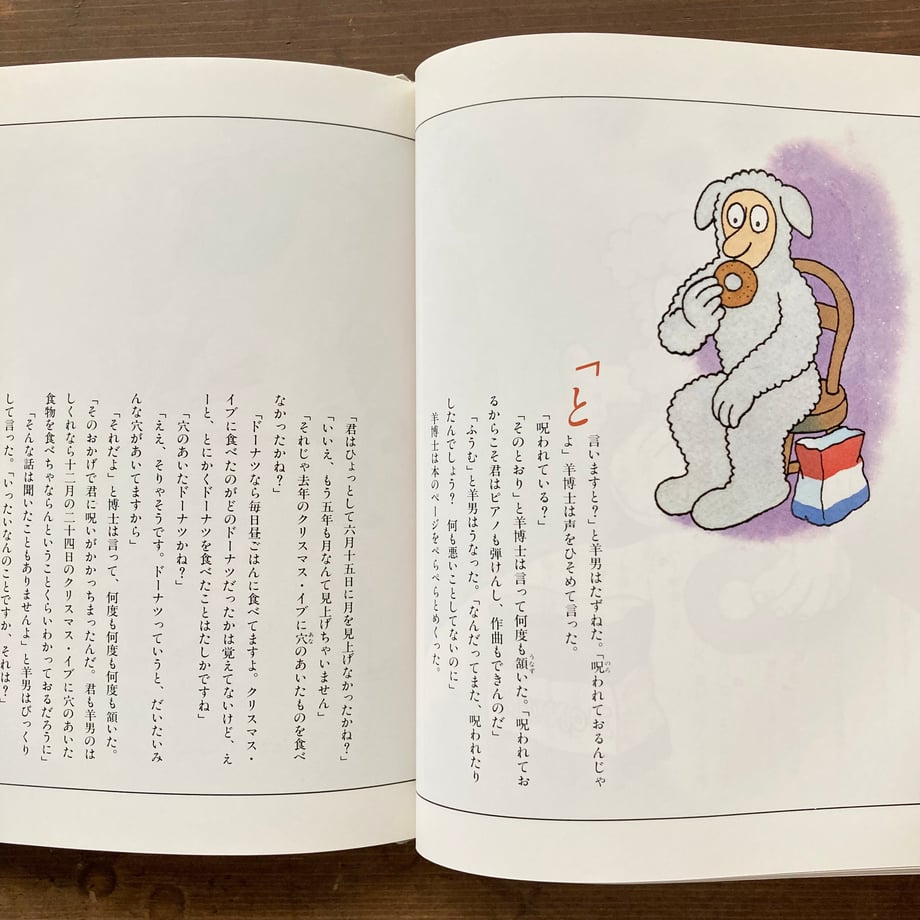 「と
言いますと？」と羊男はたずねた。「呪われておるんじゃ
よ」羊博士は声をひそめて言った。
「呪われている？」
「そのとおり」と羊博士は言って何度も頷いた。「呪われてお
るからこそ君はピアノも弾けんし、作曲もできんのだ」
「ふうむ」と羊男はうなった。「なんだってまた、呪われたり
したんでしょう？　何も悪いことしてないのに」
羊博士は本のページをぺらぺらとめくった。
「君はひょっとして六月十五日に月を見上げなかったかね？」
「いいえ、もう五年も月なんて見上げちゃいません」
「それじゃ去年のクリスマス・イブに穴のあいたものを食べ
なかったかね？」
「ドーナツなら毎日昼ごはんに食べてますよ。クリスマス・
イブに食べたのがどのドーナツだったかは覚えてないけど、え
ーと、とにかくドーナツを食べたことはたしかですね」
「穴のあいたドーナツかね？」
「ええ、そりゃそうです。ドーナツっていうと、だいたいみ
んな穴があいてますから」
「それだよ」と博士は言って、何度も何度も頷いた。
「そのおかげで君に呪いがかかっちまったんだ。君も羊男のは
しくれなら十二月の二十四日のクリスマス・イブに穴のあいた
食物を食べちゃならんということくらいわかっておるだろうに」
「そんな話は聞いたこともありませんよ」と羊男はびっくり
して言った。「いったいなんのことですか、それは？」